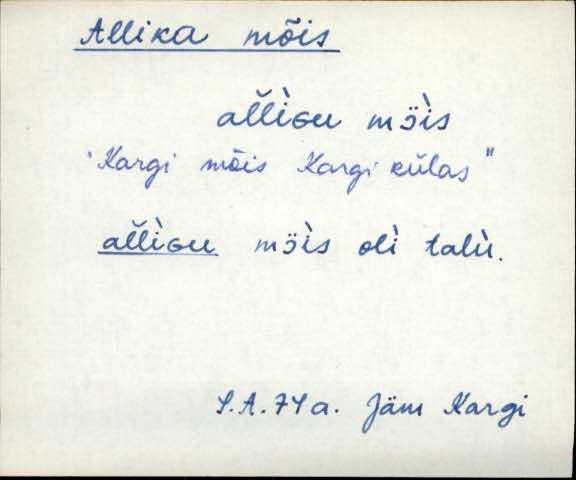 Allika mõis
al̆l̀ iɢu mɔ̈̀is
"Kargi mõis Kargi külas"
al̆l̀iɢu mɔ̈̀is oli talù.
S.A. 74a. Jäm Kargi